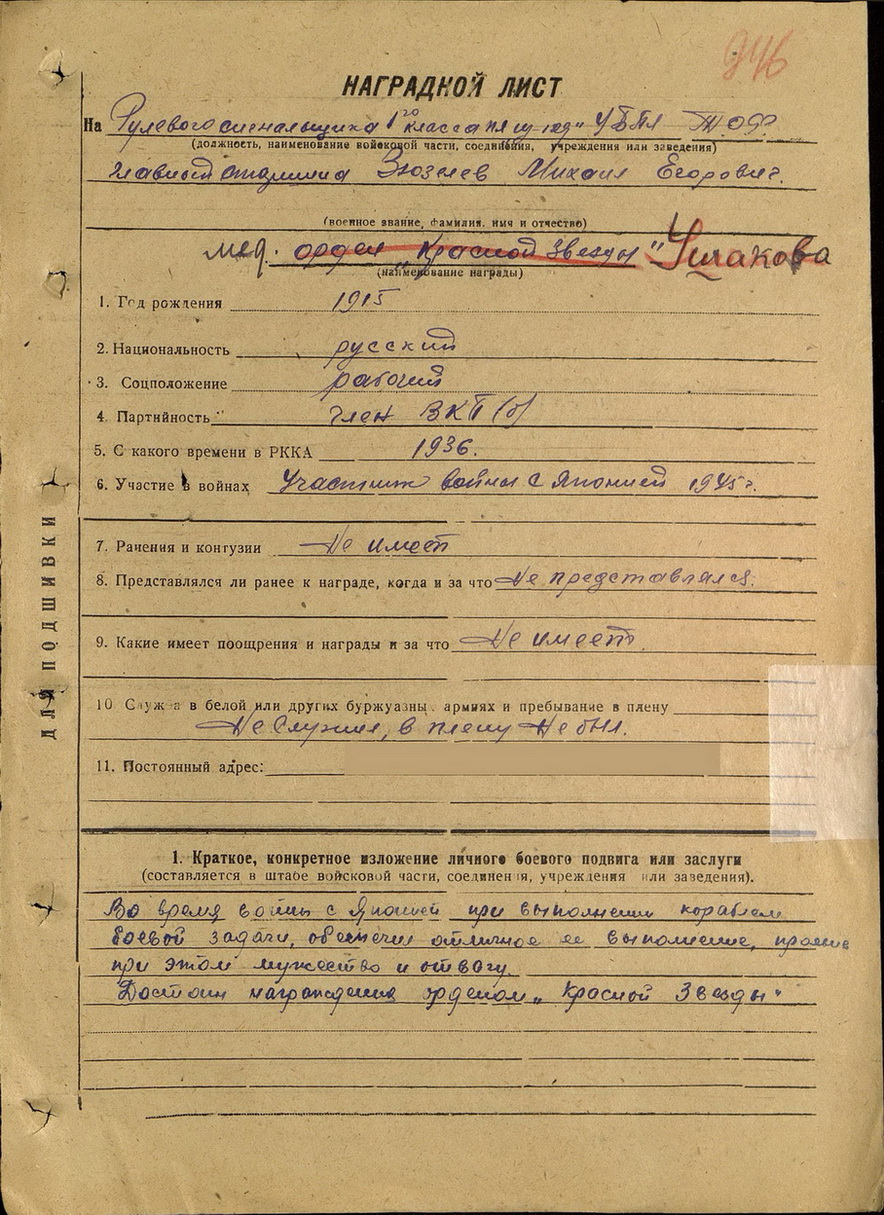 946
НАГРАДНОЙ ЛИСТ
На Рулевого сигнальщика 1го класса пл УБПЛ Т.О.Ф.
(должность, наименование войсковой части, соединения, учреждения или заведения)
главный старшина Михаил Егорович.
(военное звание, фамилия, имя и отчество)
мед. орден "Красной Звезды" Ушакова
(наименование награды)
1. Год рождения 1915
2. Национальность русский
3. Соцположение рабочий
4. Партийность член ВКП(б)
5. С какого времени в РККА 1936.
6. Участие в войнах Участник войны с Японией 1945г.
7. Ранения и контузии Не имеет
8. Представлялся ли ранее к награде, когда и за что Не представлялся.
9. Какие имеет поощрения и награды и за что Не имеет
10 Служба в белой или других буржуазны. армиях и пребывание в плену
Не служил, в плену не был.
11. Постоянный адрес:
ДЛЯ ПОДШИВКИ
1. Краткое, конкретное изложение личного боевого подвига или заслуги
(составляется в штабе войсковой части, соединения, учреждения или заведения).
Во время войны с Японией при выполнении кораблем
боевой задачи, обеспечил отличное ее выполнение, проявив
при этом мужество и отвагу.
Достоин награждения орденом „Красной Звезды"